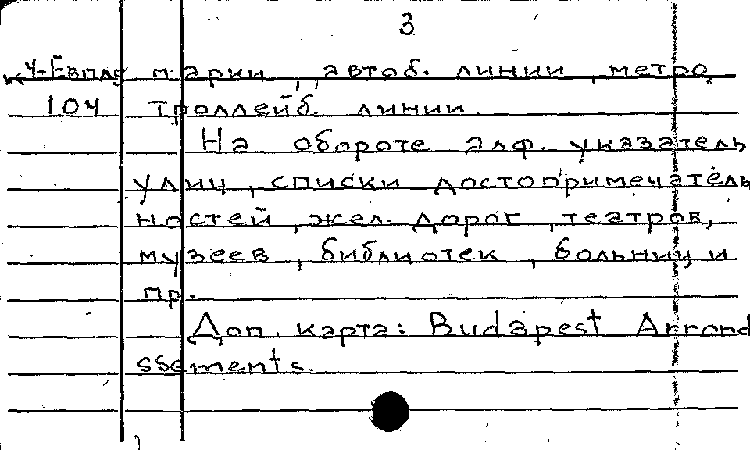 3
Ч-Евпдя п.арии, автоб. линии, метро,
104 троллейб. линии.
На обороте алф. указатель
улиц, списки достопримечатель
ностей, жел. дорог, театров,
музеев, библиотек, больниц и
пр.
Доп. карта: Budapest Arrond
ssements.